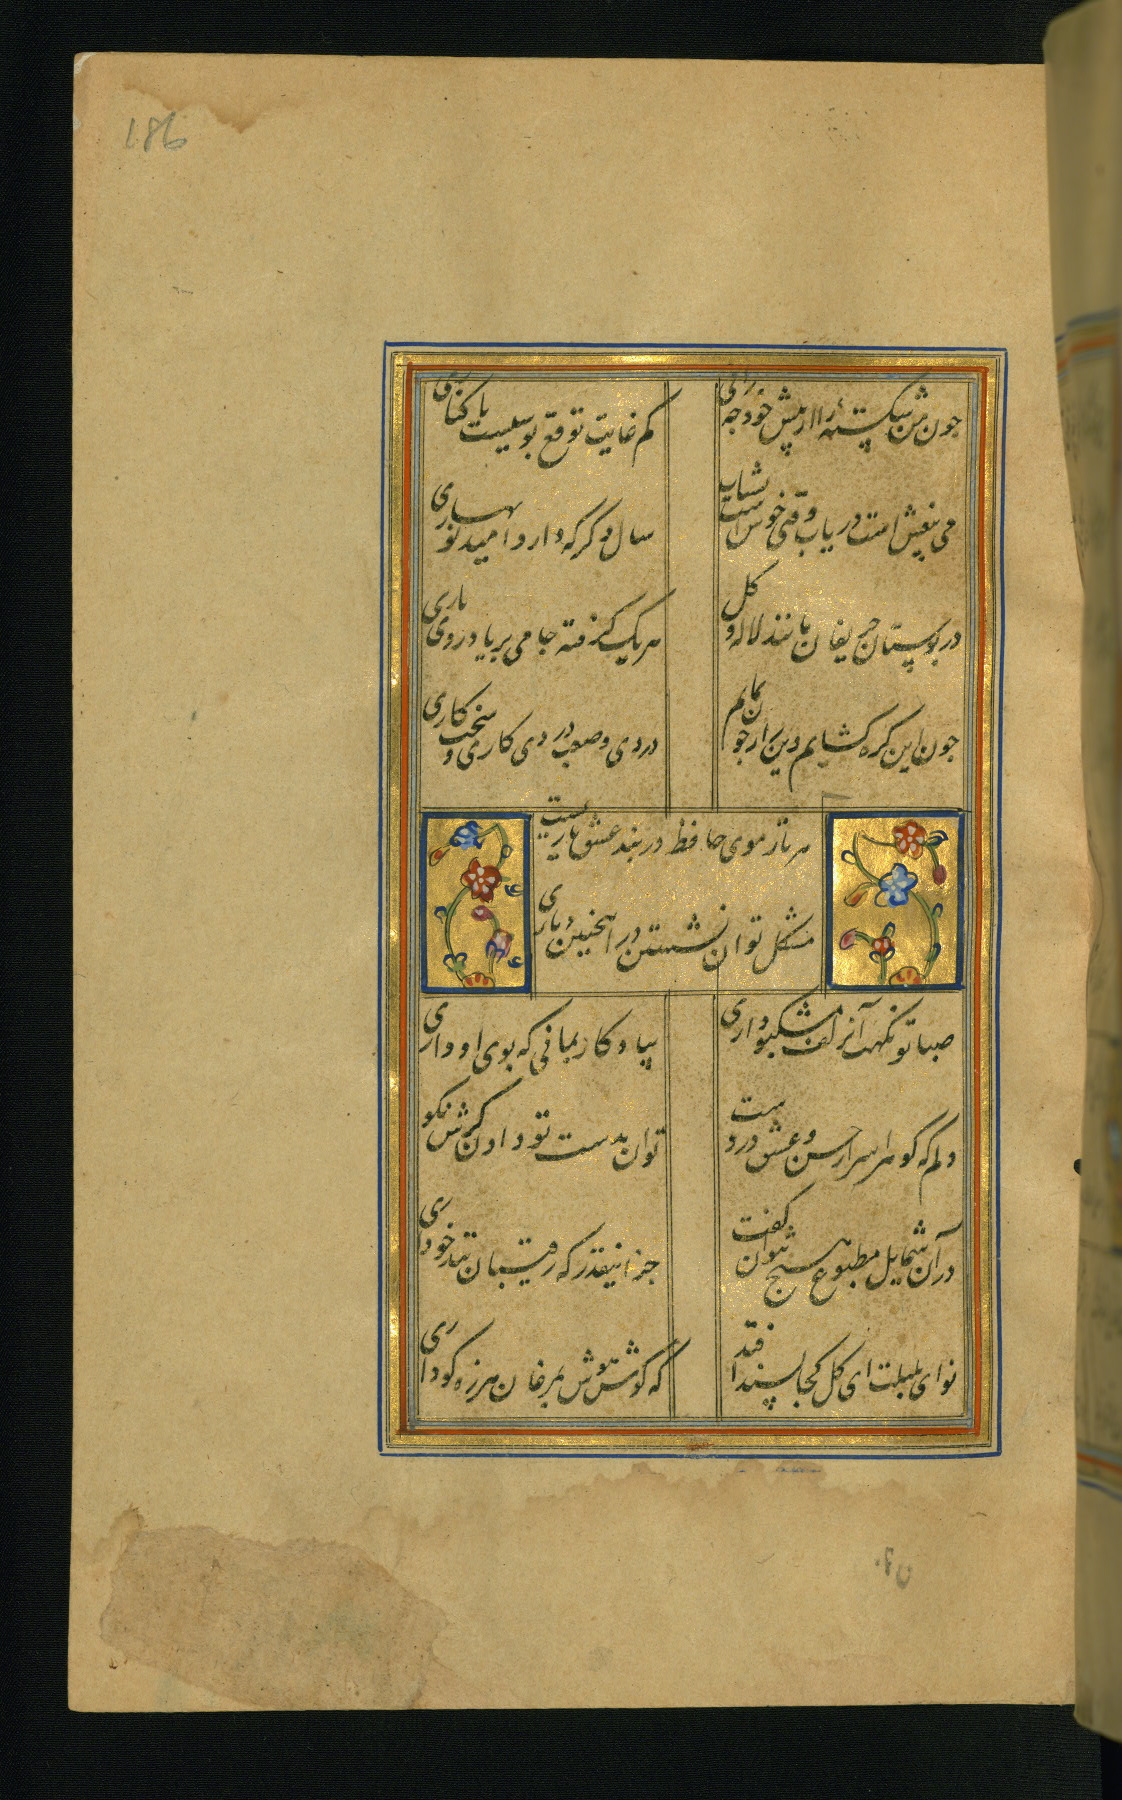 186
چون من شکسته‌ٔ را از پیش خود چه رانی
کم غایت توقع بوسیست یا کناری
می بیغش است دریاب وقتی خوش است بشتاب
سال دگر که دارد امید نوبهاری
در بوستان حریفان مانند لاله و گل
هریک گرفته جامی بر یاد روی یاری
چون این گره گشایم وین راز چون نمایم
دردی و صعب دردی کاری و سخت کاری
هر تار موی حافظ در بند عشق یاریست
مشکل توان نشستن در اینچنین دیاری
صبا تو نکهت آن زلف مشکبو داری
بیادگار بمانی که بوی او داری
دلم که گوهر اسرار حسن و عشق دروست
توان بدست تو دادن گرش نکو داری
در آن شمایل مطبوع هیچ نتوان گفت
جز اینقدر که رقیبان تندخو داری
نوای بلبلت ای گل کجا پسند افتد
که گوش هوش بمرغان هرزه گو داری